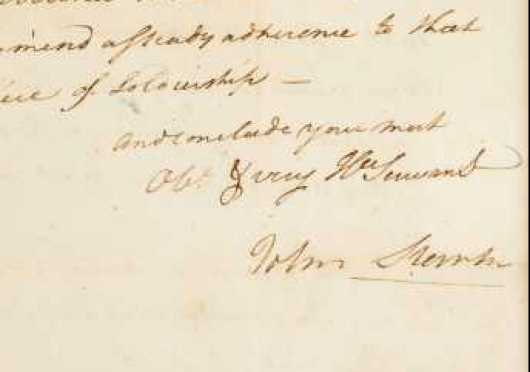 mend a steady adherence to that
of Soldiership —
and conclude your most
Obt & very Hle Servant
John